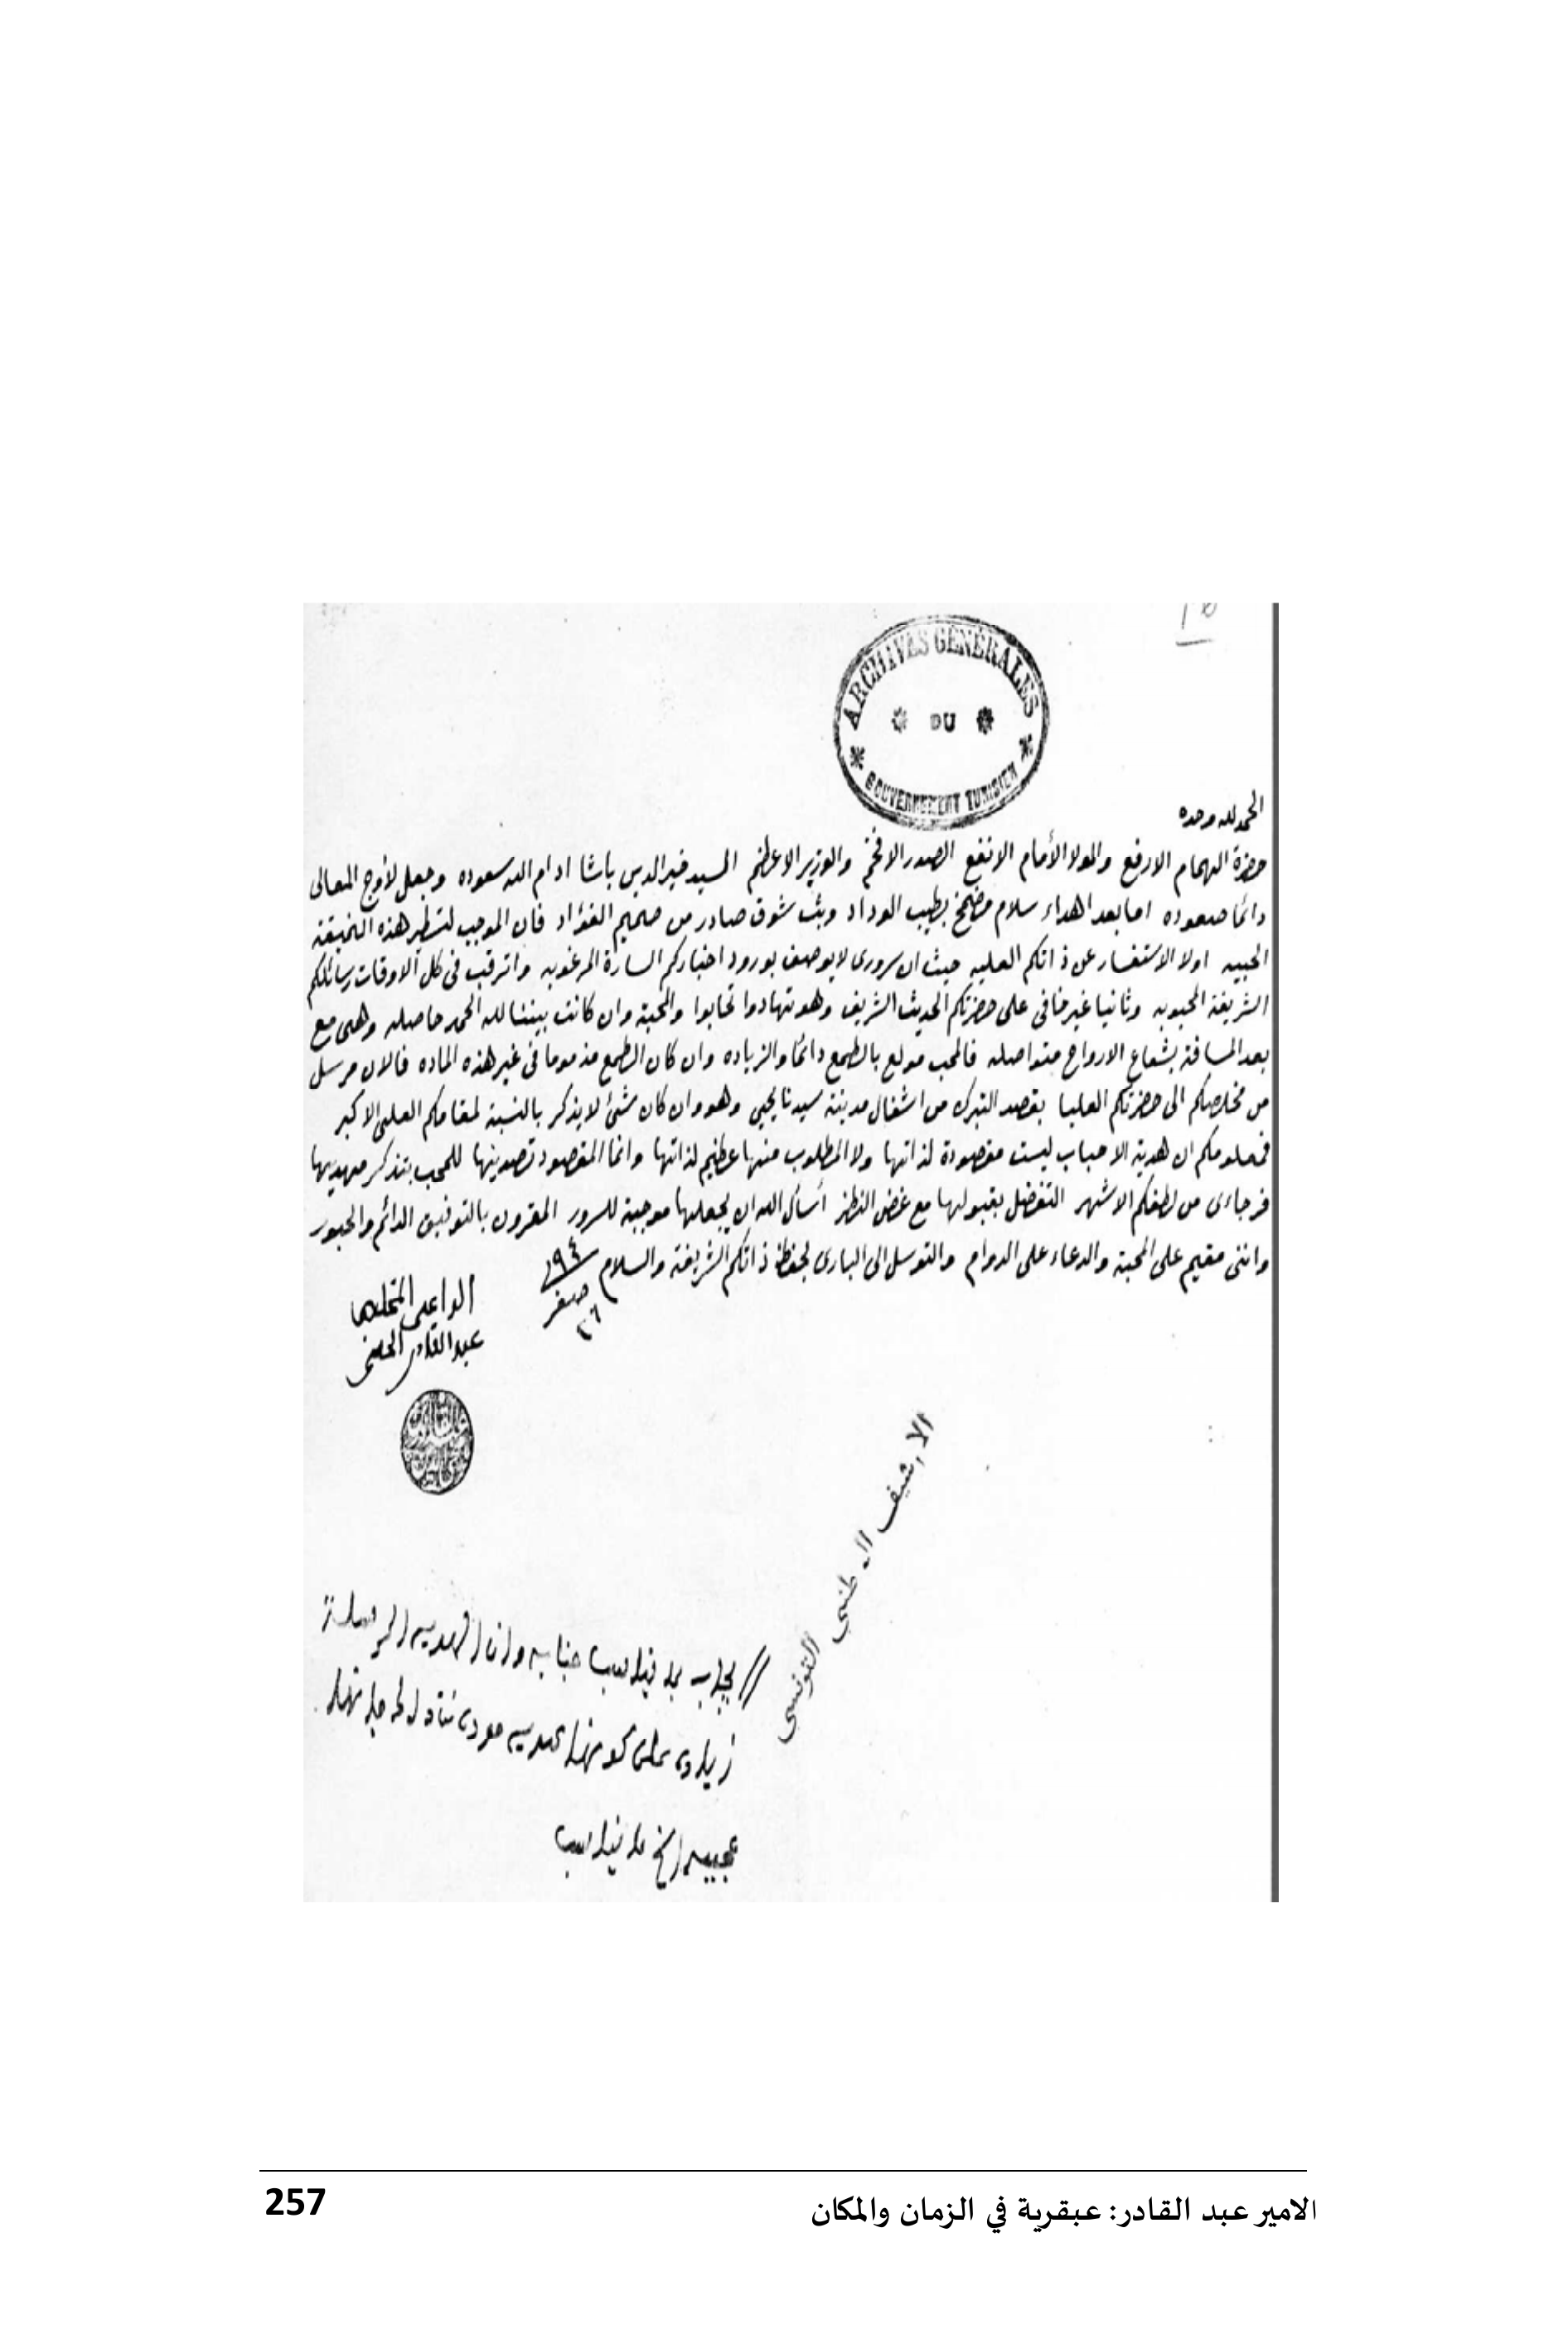 ARCHIVES GÉNÉRALES
DU
GOUVERNEMENT TUNISIEN
الحمد لله وحده
حضرة الهمام الارفع والمولا الأمام الانفع الصدر الافخم والوزير الاعظم السيد خير الدين باشا ادام الله سعوده وجعل لأوج المعالى
دائما صعوده اما بعد اهداء سلام مضمخ بطيب الوداد وبث شوق صادر من صميم الفؤاد فان الموجب لتسطير هذه النميقة
الحبيه اولا الاستفسار عن ذاتكم العليه حيث ان سرورى لا يوصف بورود اخباركم السارة المرغوبه واترقب فى كل الاوقات رسائلكم
الشريفة المحبوبه وثانيا غير خافى على حضرتكم الحديث الشريف وهو تهادوا تحابوا والمحبة وان كانت بيننا لله الحمد حاصله وهى مع
بعد المسافة بشعاع الارواح متواصله فالمحب مولع بالطمع دائما والزياده وان كان الطمع مذموما فى غير هذه الماده فالان مرسل
من مخلصكم الى حضرتكم العليا بقصد التبرك من اشغال مدينة سيدنا يحيى وهو وان كان شئ لا يذكر بالنسبة لمقامكم العلى الاكبر
فمعلومكم ان هدية الاحباب ليست مقصودة لذاتها ولا المطلوب منها عظيم لذاتها وانما المقصود تصويرها للمحب بتذكر مهديها
فرجاءى من لطفكم الاشهر التفضل بقبولها مع غض النظر أسأل الله ان يجعلها موجبة للسرور المقرون بالتوفيق الدائم والحبور
واننى مقيم على المحبة والدعاء على الدوام والتوسل الى البارى بحفظ ذاتكم الشريفة والسلام
٢٦ صفر ٩٤
الداعى المخلص
عبد القادر الحسنى
الارشيف الوطني التونسي
يجاب بما يناسب جنابه وان الهديه المرسلة
زياده على كونها هديه
بما يناسب
257
الامير عبد القادر: عبقرية في الزمان والمكان